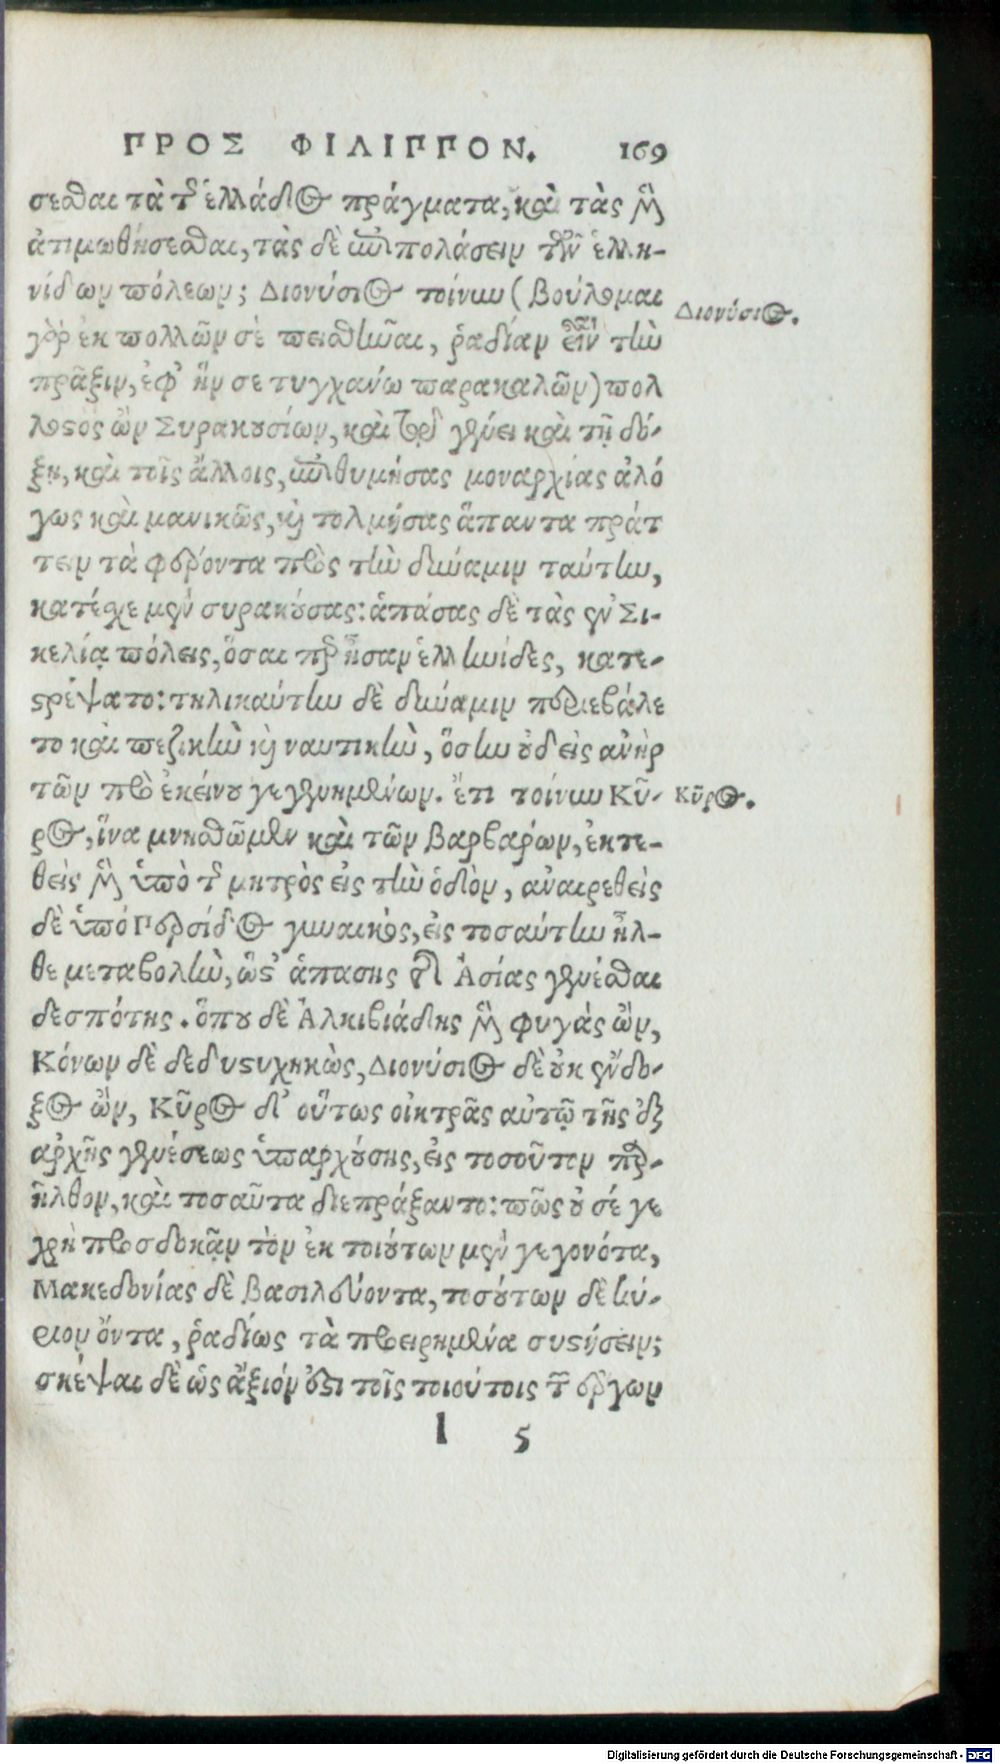 ΠΡΟΣ ΦΙΛΙΠΠΟΝ. 169
σεσθαι τὰ τῆς ἑλλάδος πράγματα, καὶ τὰς μὲν
ἀτιμωθήσεσθαι, τὰς δὲ ἐπιπολάσειν τῶν ἑλλη-
νίδων πόλεων; Διονύσιος τοίνυν (βούλομαι
γὰρ ἐκ πολλῶν σὲ πεισθῆναι, ῥᾳδίαν εἶναι τὴν
πρᾶξιν, ἐφ' ἥν σε τυγχάνω παρακαλῶν) πολ
λοστὸς ὢν Συρακουσίων, καὶ τῷ γένει καὶ τῇ δό-
ξῃ, καὶ τοῖς ἄλλοις, ἐπιθυμήσας μοναρχίας ἀλό
γως καὶ μανικῶς, καὶ τολμήσας ἅπαντα πράτ
τειν τὰ φέροντα πρὸς τὴν δύναμιν ταύτην,
κατέσχε μὲν συρακούσας: ἁπάσας δὲ τὰς ἐν Σι-
κελίᾳ πόλεις, ὅσαι περ ἦσαν ἑλληνίδες, κατε-
στρέψατο: τηλικαύτην δὲ δύναμιν περιεβάλε
το καὶ πεζικὴν καὶ ναυτικὴν, ὅσην οὐδεὶς ἀνὴρ
τῶν πρὸ ἐκείνου γεγενημένων. ἔτι τοίνυν Κῦ-
ρος, ἵνα μνησθῶμεν καὶ τῶν βαρβάρων, ἐκτε-
θεὶς μὲν ὑπὸ τῆς μητρὸς εἰς τὴν ὁδὸν, ἀναιρεθεὶς
δὲ ὑπὸ Περσίδος γυναικός, εἰς τοσαύτην ἦλ-
θε μεταβολὴν, ὥστ' ἁπάσης τῆς Ἀσίας γενέσθαι
δεσπότης. ὅπου δὲ Ἀλκιβιάδης μὲν φυγὰς ὢν,
Κόνων δὲ δεδυστυχηκὼς, Διονύσιος δὲ οὐκ ἔνδο-
ξος ὢν, Κῦρος δ' οὕτως οἰκτρᾶς αὐτῷ τῆς ἐξ
ἀρχῆς γενέσεως ὑπαρχούσης, εἰς τοσοῦτον προ-
ῆλθον, καὶ τοσαῦτα διεπράξαντο: πῶς οὐ σέ γε
χρὴ προσδοκᾷν τὸν ἐκ τοιούτων μὲν γεγονότα,
Μακεδονίας δὲ βασιλεύοντα, τοσούτων δὲ κύ-
ριον ὄντα, ῥᾳδίως τὰ προειρημένα συστήσειν;
σκέψαι δὲ ὡς ἄξιόν ἐστι τοῖς τοιούτοις τῶν ἔργων
l 5
Διονύσιος.
Κῦρος.
Digitalisierung gefördert durch die Deutsche Forschungsgemeinschaft - DFG